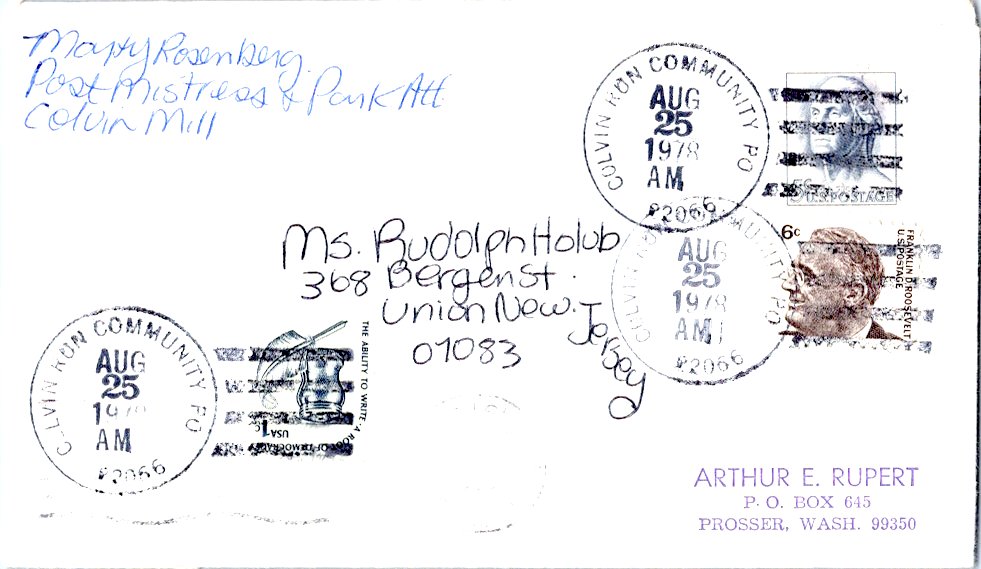 Marty Rosenberg
Post Mistress & Park Att.
Colvin Mill
COLVIN RUN COMMUNITY PO
AUG
25
1978
AM
22066
5c
U.S. POSTAGE
6c
FRANKLIN D. ROOSEVELT
U.S. POSTAGE
COLVIN RUN COMMUNITY PO
AUG
25
1978
AM
22066
Ms. Rudolph Holub
368 Bergen St.
Union New. Jersey
07083
COLVIN RUN COMMUNITY PO
AUG
25
AM
22066
THE ABILITY TO WRITE · A ROOT OF DEMOCRACY
USA
1c
ARTHUR E. RUPERT
P. O. BOX 645
PROSSER, WASH. 99350